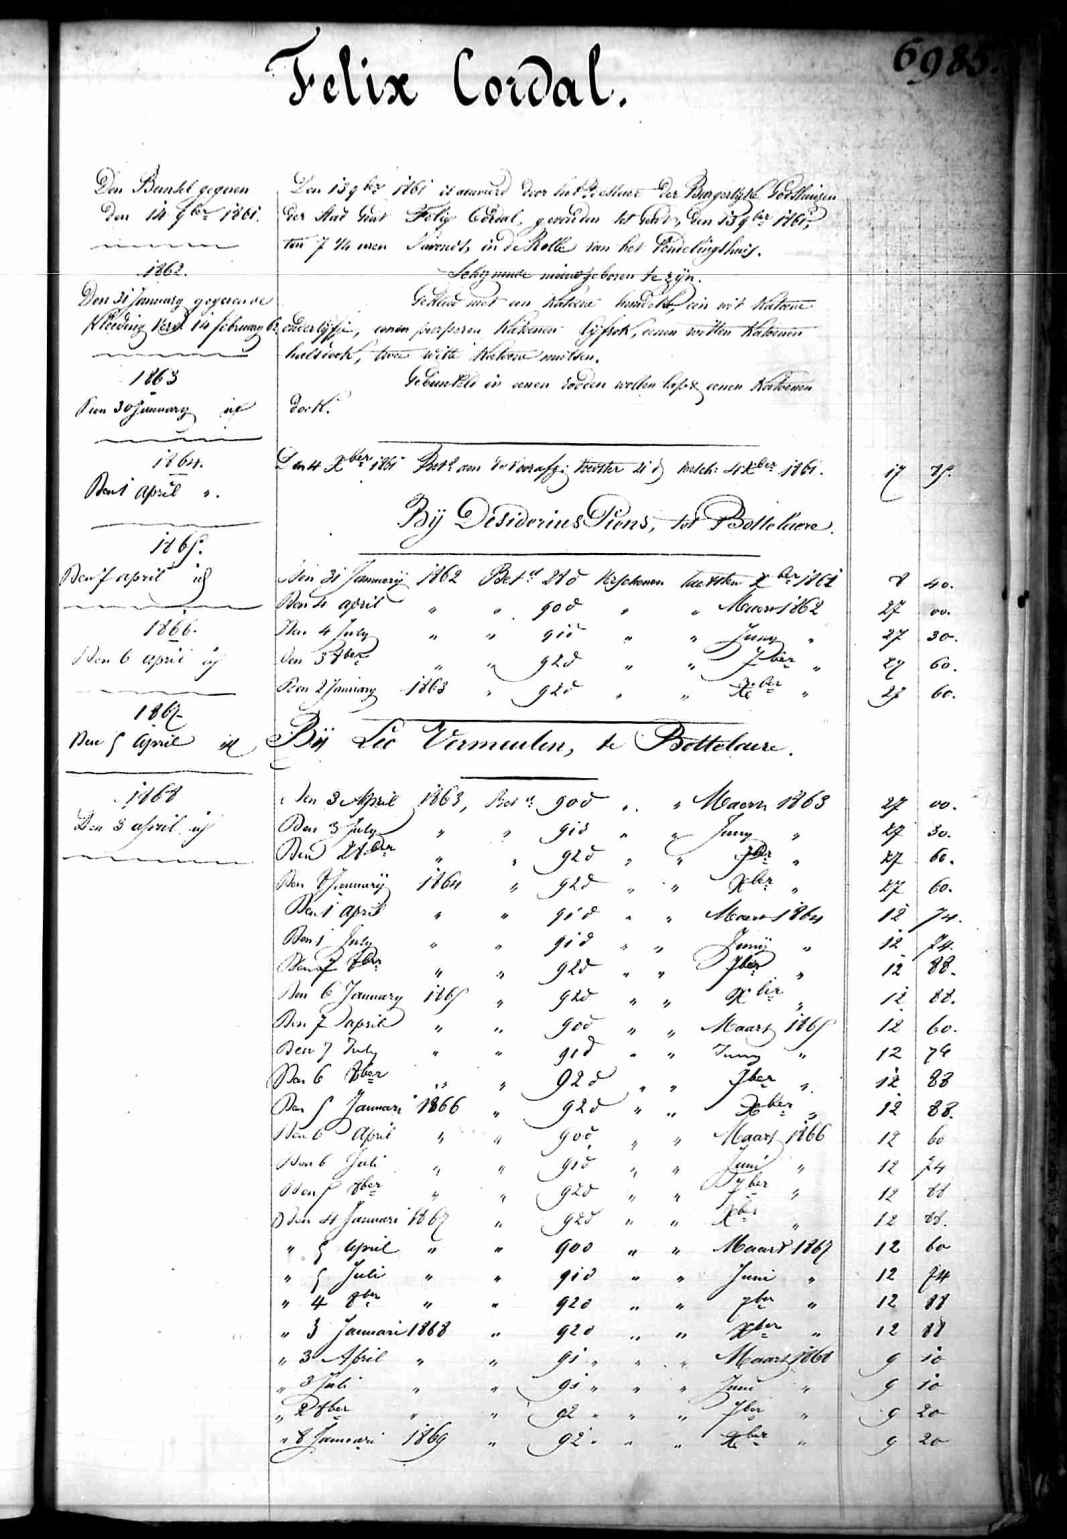 6985.
Felix Cordal.
Den Bundel gegeven
den 14 9ber 1861.
1862.
Den 31 January gegeven de
kleeding verv. 14 february 62
1863
Den 30 January id
1864.
Den 1 April ".
1865.
Den 7 april id
1866.
Den 6 april id
1867
Den 5 April id
1868
Den 3 april id
Den 13 9ber 1861 is door het Bestuur der Burgerlyke Godshuizen
der Stad Gent Felix Cordal, gevonden tot Gent, den 13 9ber 1861,
ten 7 1/4 uren s'avonds, in de Rolle van het Vondelingshuis.
Schynende nieuwgeboren te zyn.
Gekleed met een katoene hemdeke, een wit katoene
onderlyfje, eenen perssen katoenen lyfrok, eenen witten katoenen
halsdoek, twee witte katoene mutsen.
Gebundeld in eenen rooden wollen lap & eenen katoenen
doek.
Den 4 Xber 1861 Betd aen de voorz. voester 21 d versch: 4 Xber 1861. 17 75.
Bij Desiderius Piens, tot Bottelaere.
Den 31 January 1862 Betd 28 d verschenen Xber 1861 8 40.
Den 4 april " " 90 d " " Maart 1862 27 00.
Den 4 July " " 91 d " " Juny " 27 30.
Den 3 8ber " " 92 d " " 7ber " 27 60.
Den 2 January 1863 " 92 d " " Xber " 27 60.
Bij Leo Vermeulen, te Bottelaere.
Den 3 April 1863, Betd 90 d " " Maart 1863 27 00.
Den 3 July " " 91 d " " Juny " 27 30.
Den 2 8ber " " 92 d " " 7ber " 27 60.
Den 8 January 1864 " 92 d " " Xber " 27 60.
Den 1 April " " 91 d " " Maart 1864 12 74.
Den 1 July " " 91 d " " Junij " 12 74.
Den 7 8ber " " 92 d " " 7ber " 12 88.
Den 6 January 1865 " 92 d " " Xber " 12 88.
Den 7 april " " 90 d " " Maart 1865 12 60.
Den 7 July " " 91 d " " Juny " 12 74
Den 6 8ber " " 92 d " " 7ber " 12 88
Den 5 Januari 1866 " 92 d " " Xber " 12 88.
Den 6 April " " 90 d " " Maart 1866 12 60
Den 6 Juli " " 91 d " " Juni " 12 74
Den 5 8ber " " 92 d " " 7ber " 12 88
Den 4 Januari 1867 " 92 d " " Xber " 12 88.
" 5 April " " 90 d " " Maart 1867 12 60
" 5 Juli " " 91 d " " Juni " 12 74
" 4 8ber " " 92 d " " 7ber " 12 88
" 3 Januari 1868 " 92 d " " Xber " 12 88
" 3 April " " 91 " " " Maart 1868 9 10
" 3 Juli " " 91 " " " Juni " 9 10
" 2 8ber " " 92 " " " 7ber " 9 20
" 8 Januari 1869 " 92 " " " Xber " 9 20